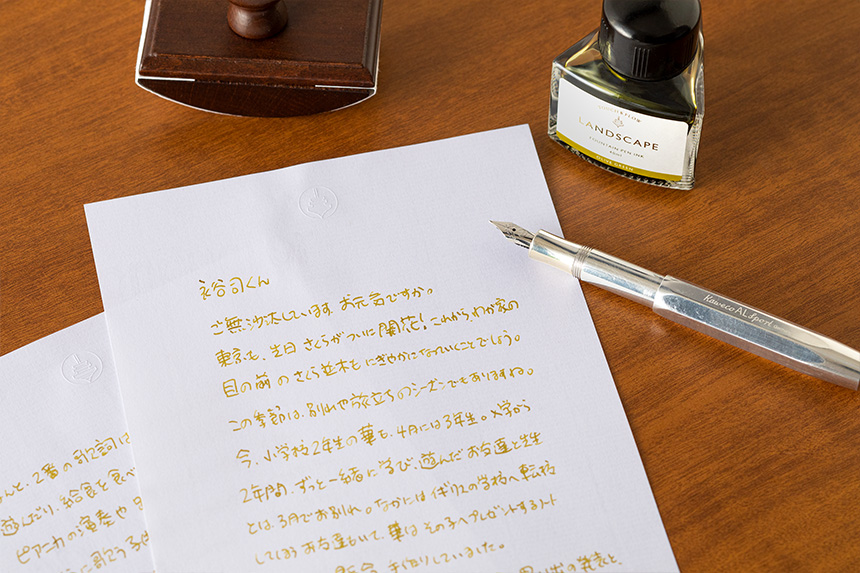 LANDSCAPE
FOUNTAIN PEN INK
Kaweco AL Sport
裕司くん
ご無沙汰しています。お元気ですか。
東京も、先日 さくらがついに開花！これから、わが家の
目の前のさくら並木もにぎやかになっていくことでしょう。
この季節は、別れや旅立ちのシーズンでもありますね。
今、小学校2年生の華も、4月には3年生。入学から
2年間、ずっと一緒に学び、遊んだお友達と先生
とは、3月でお別れ。なかにはイギリスの学校へ転校
してしまうお友達もいて、華はその子へプレゼントするノート
手作りしていました。
の発表と、
んと、2番の歌詞は
遊んだり、給食を食べ
ピアニカの演奏や
に歌う